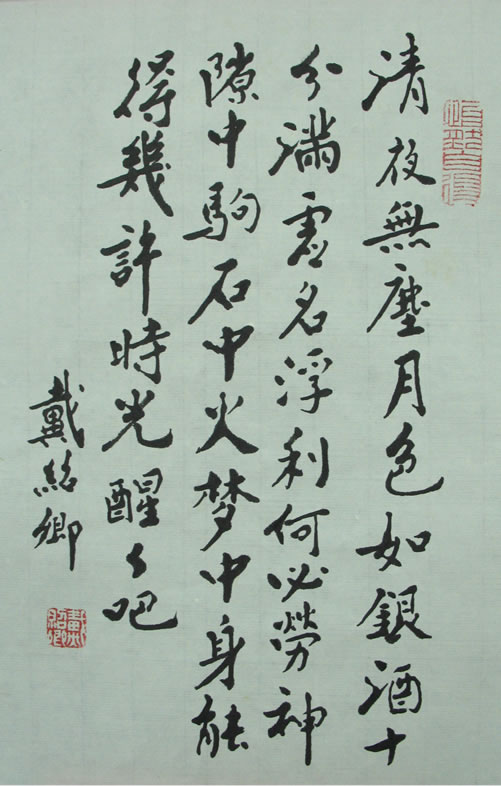 清夜無塵月色如銀酒十
分滿虛名浮利何必勞神
隙中駒石中火梦中身能
得幾許時光醒々吧
戴紹卿
戴紹卿